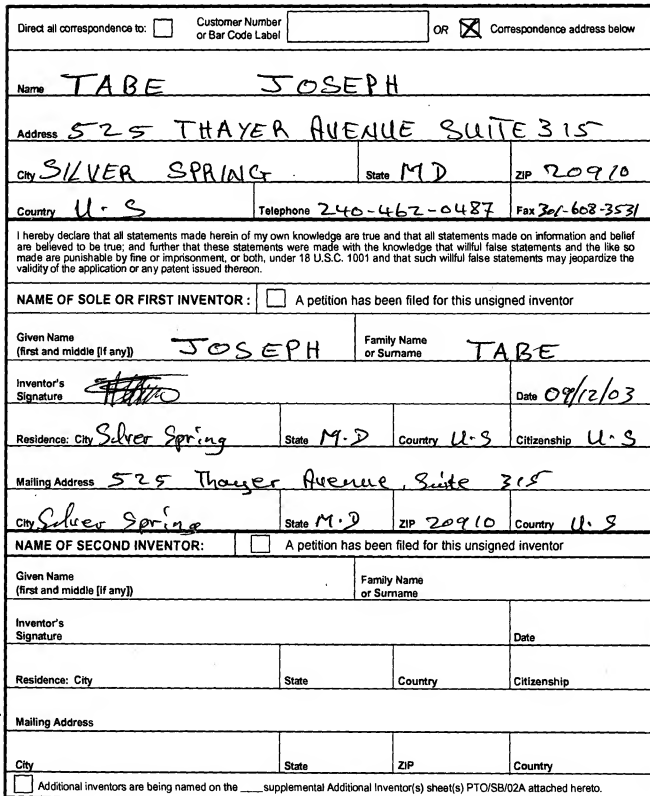 Direct all correspondence to: Customer Number or Bar Code Label OR Correspondence address below
Name TABE JOSEPH
Address 525 THAYER AVENUE SUITE 315
City SILVER SPRING State MD ZIP 20910
Country U.S Telephone 240-462-0487 Fax 301-608-3531
I hereby declare that all statements made herein of my own knowledge are true and that all statements made on information and belief
are believed to be true; and further that these statements were made with the knowledge that willful false statements and the like so
made are punishable by fine or imprisonment, or both, under 18 U.S.C. 1001 and that such willful false statements may jeopardize the
validity of the application or any patent issued thereon.
NAME OF SOLE OR FIRST INVENTOR : A petition has been filed for this unsigned inventor
Given Name (first and middle [if any]) JOSEPH Family Name or Surname TABE
Inventor's Signature Date 09/12/03
Residence: City Silver Spring State M.D Country U.S Citizenship U.S
Mailing Address 525 Thayer Avenue, Suite 315
City Silver Spring State M.D ZIP 20910 Country U.S
NAME OF SECOND INVENTOR: A petition has been filed for this unsigned inventor
Given Name (first and middle [if any]) Family Name or Surname
Inventor's Signature Date
Residence: City State Country Citizenship
Mailing Address
City State ZIP Country
Additional inventors are being named on the ___supplemental Additional Inventor(s) sheet(s) PTO/SB/02A attached hereto.